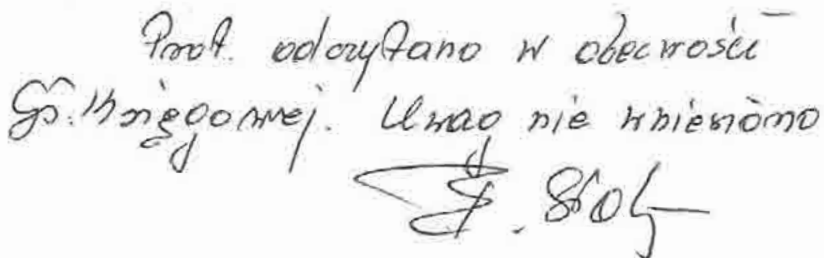 Prot. odczytano w obecności
Gł. Księgowej. Uwag nie wniesiono